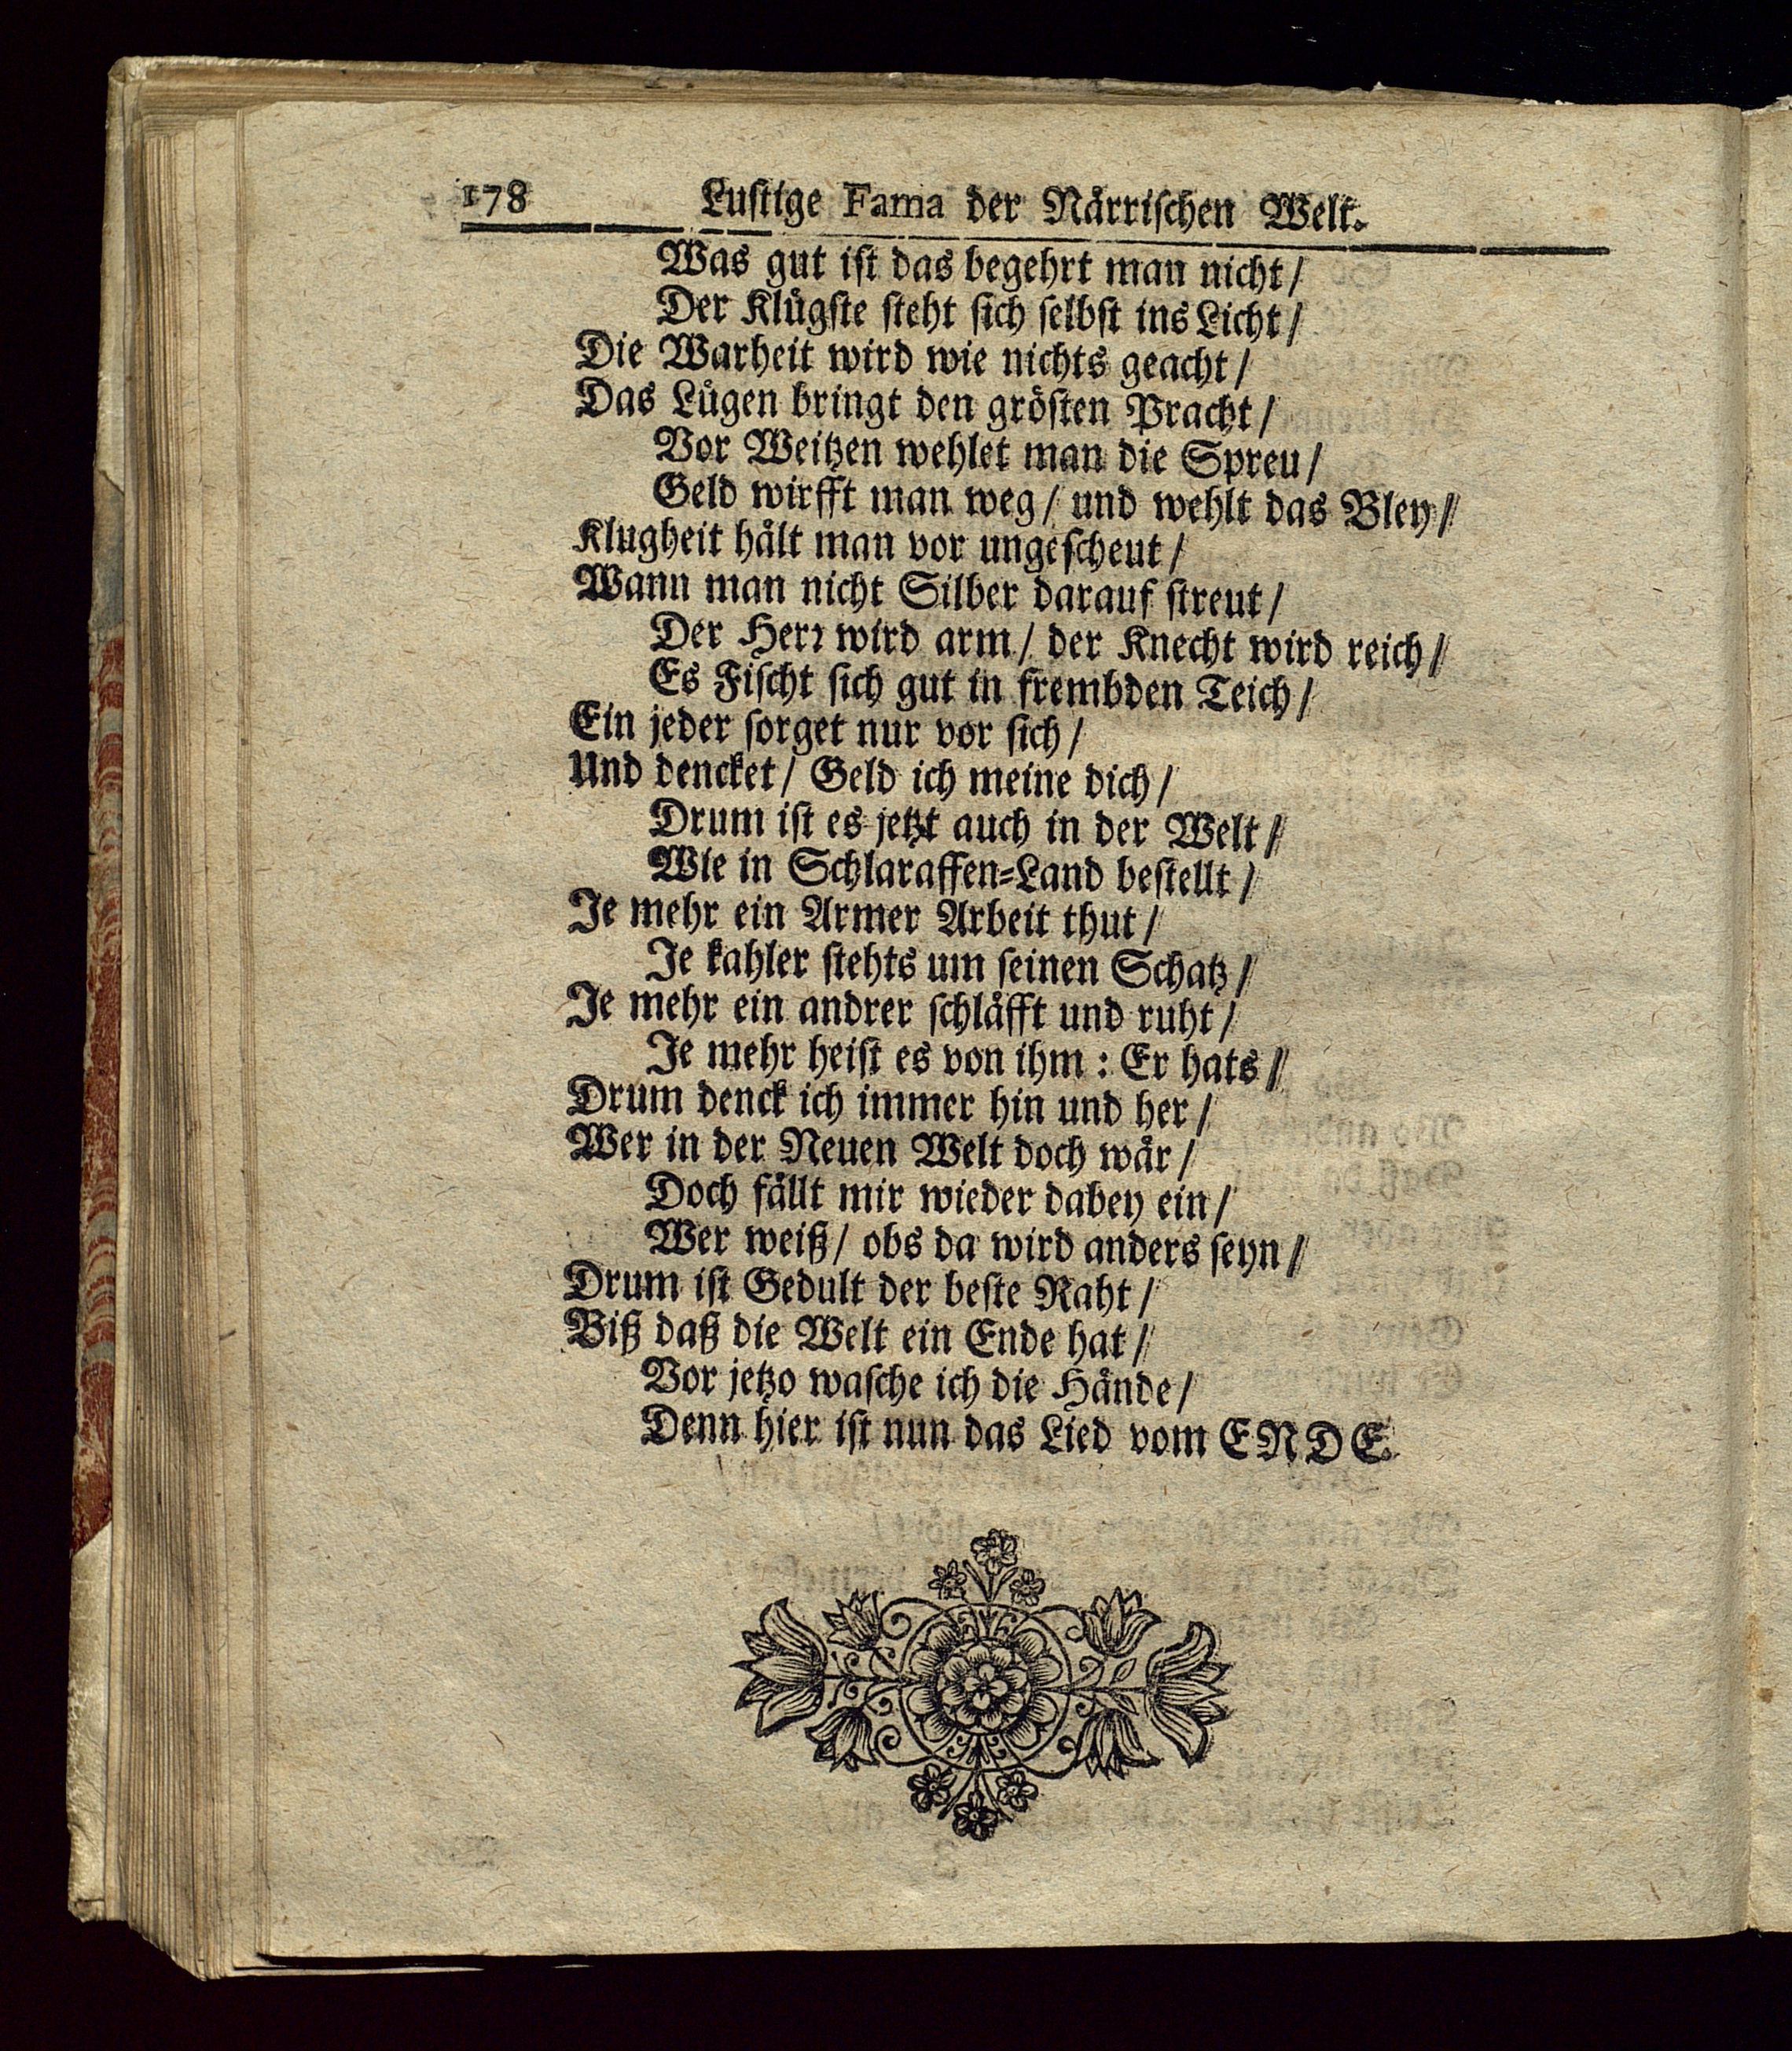 178 Lustige Fama der Närrischen Welt.
Was gut ist das begehrt man nicht/
Der Klügste steht sich selbst ins Licht/
Die Warheit wird wie nichts geacht/
Das Lügen bringt den grösten Pracht/
Vor Weitzen wehlet man die Spreu/
Geld wirfft man weg/ und wehlt das Bley/
Klugheit hält man vor ungescheut/
Wann man nicht Silber darauf streut/
Der Herr wird arm/ der Knecht wird reich/
Es Fischt sich gut in frembden Teich/
Ein jeder sorget nur vor sich/
Und dencket/ Geld ich meine dich/
Drum ist es jetzt auch in der Welt/
Wie in Schlaraffen-Land bestellt/
Je mehr ein Armer Arbeit thut/
Je kahler stehts um seinen Schatz/
Je mehr ein andrer schläfft und ruht/
Je mehr heist es von ihm: Er hats/
Drum denck ich immer hin und her/
Wer in der Neuen Welt doch wär/
Doch fällt mir wieder dabey ein/
Wer weiß/ obs da wird anders seyn/
Drum ist Gedult der beste Raht/
Biß daß die Welt ein Ende hat/
Vor jetzo wasche ich die Hände/
Denn hier ist nun das Lied vom ENDE.